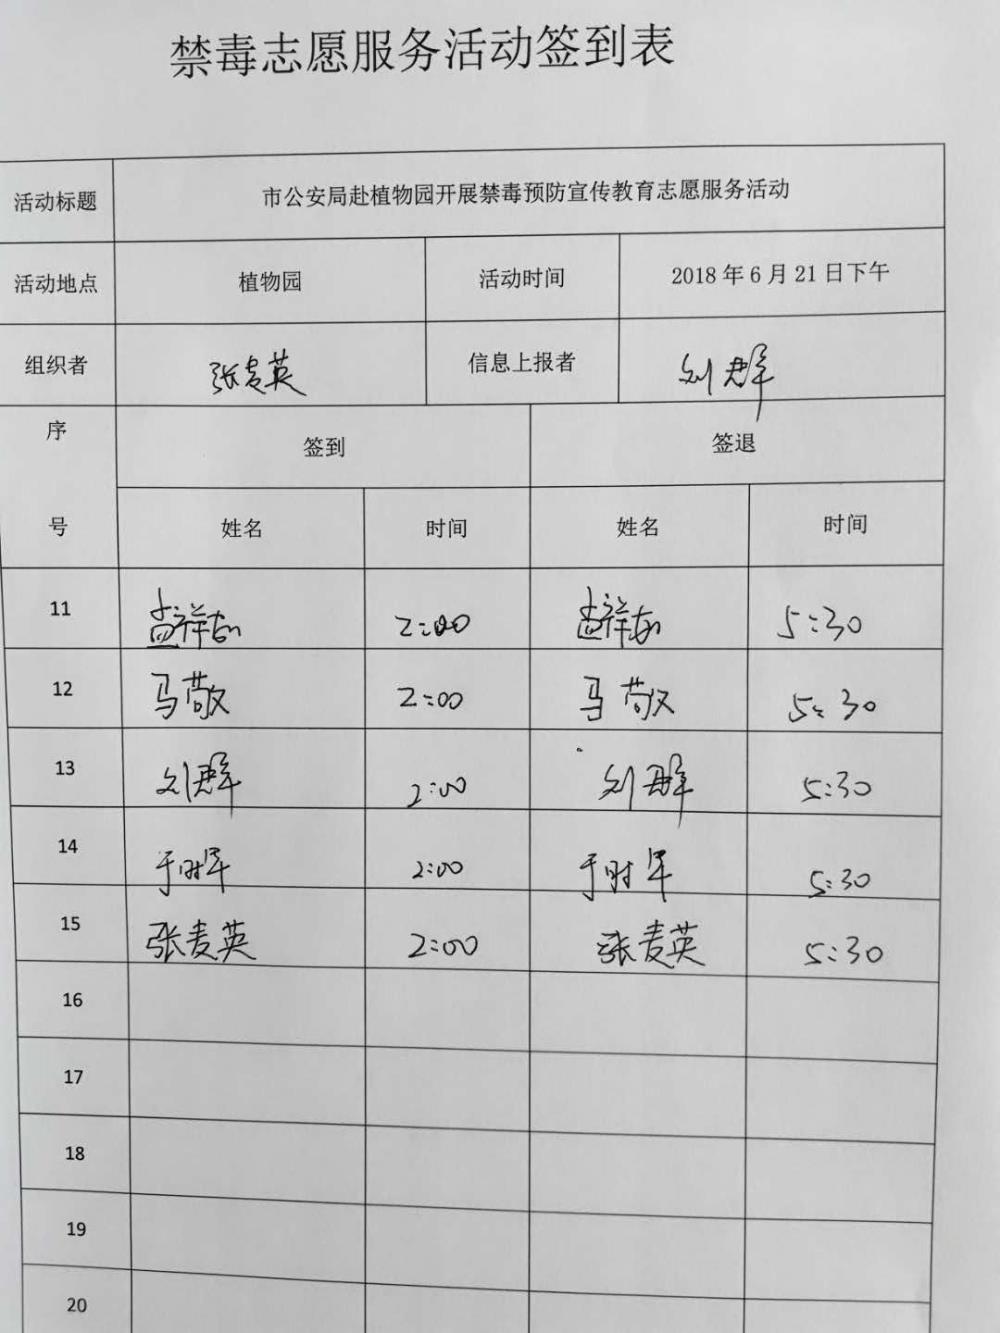 禁毒志愿服务活动签到表
活动标题 市公安局赴植物园开展禁毒预防宣传教育志愿服务活动
活动地点 植物园 活动时间 2018 年 6 月 21 日下午
组织者 张麦英 信息上报者 刘群
序号 签到 签退
姓名 时间 姓名 时间
11 孟祥 2:00 孟祥 5:30
12 马敬 2:00 马敬 5:30
13 刘群 2:00 刘群 5:30
14 于时军 2:00 于时军 5:30
15 张麦英 2:00 张麦英 5:30
16
17
18
19
20